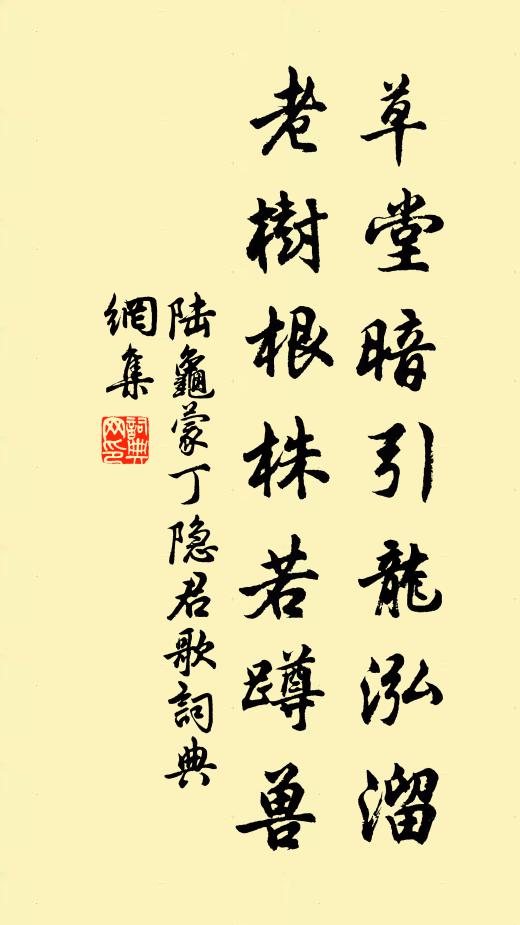 草堂暗引龍泓溜
老樹根株若蹲兽
陆龜蒙丁隐君歌詞典
網集
詞典网印